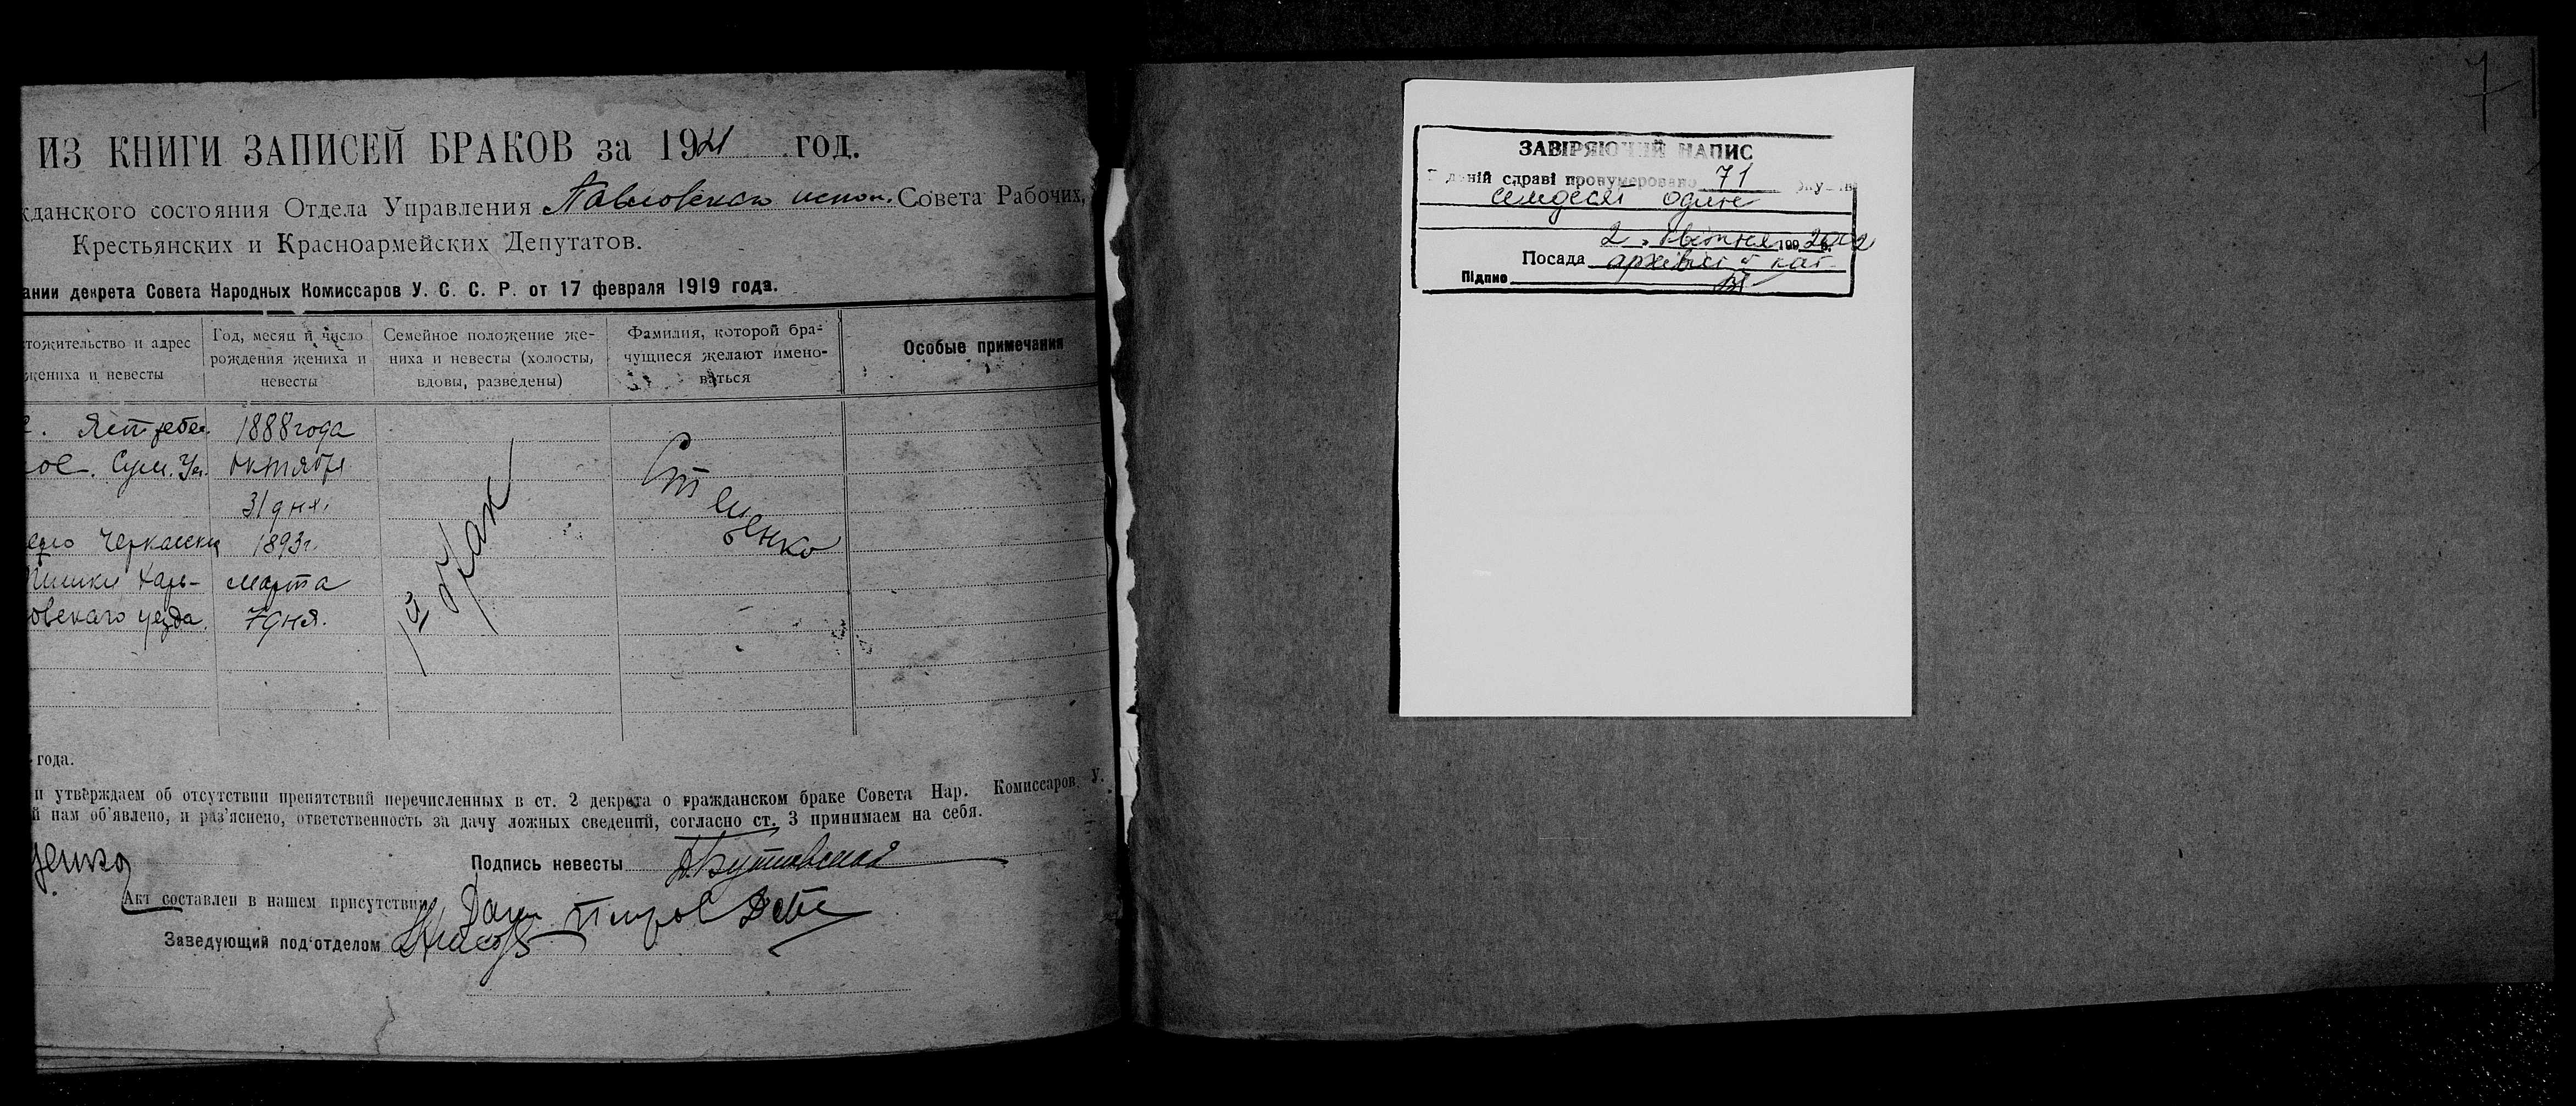 ИЗ КНИГИ ЗАПИСЕЙ БРАКОВ за 1921 год.
жданского состояния Отдела Управления Павловского испол. Совета Рабочих,
Крестьянских и Красноармейских Депутатов.
ании декрета Совета Народных Комиссаров У. С. С. Р. от 17 февраля 1919 года.
тожительство и адрес
жениха и невесты
Год, месяц и число
рождения жениха и
невесты
Семейное положение же-
ниха и невесты (холосты,
вдовы, разведены)
Фамилия, которой бра-
чущиеся желают имено-
ваться
Особые примечания
Ястребен.
1888 года
ое. Сум. Уез.
октября
31 дня.
ело Черкасски
1893 г.
Тишки Харь-
марта
ковскаго уезда.
7 дня.
1й брак
Стеценко
года.
и утверждаем об отсутствии препятствий перечисленных в ст. 2 декрета о гражданском браке Совета Нар. Комиссаров У.
й нам об'явлено, и раз'яснено, ответственность за дачу ложных сведений, согласно ст. 3 принимаем на себя.
ценко
Подпись невесты
Акт составлен в нашем присутствии
Заведующий под'отделом
71
ЗАВІРЯЮЧИЙ НАПИС
В даній справі пронумеровано 71 аркушів
семдесят один
2 квітня 199 2002 р.
Посада архівіст II кат.
Підпис